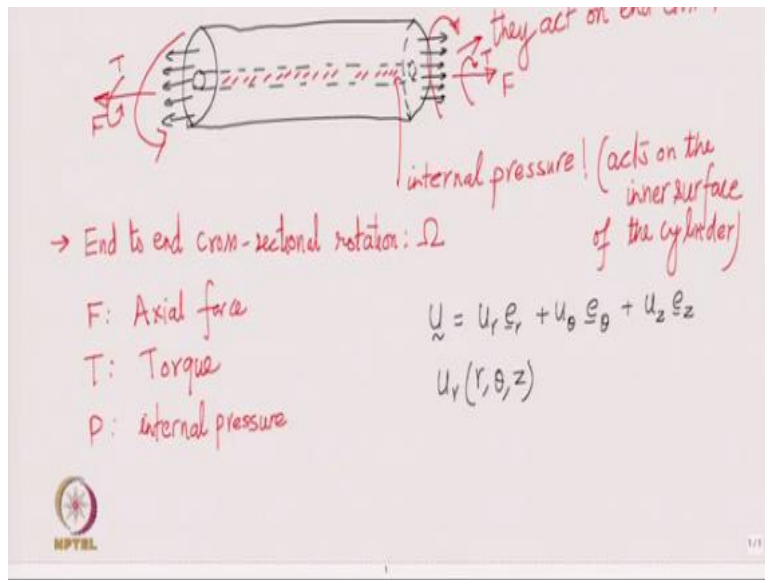 they act on end
T
F
T
F
internal pressure! (acts on the
inner surface
of the cylinder)
→ End to end cross-sectional rotation: Ω
F: Axial force
T: Torque
P: internal pressure
u = u_r e_r + u_θ e_θ + u_z e_z
u_r (r, θ, z)
NPTEL
1/1
1